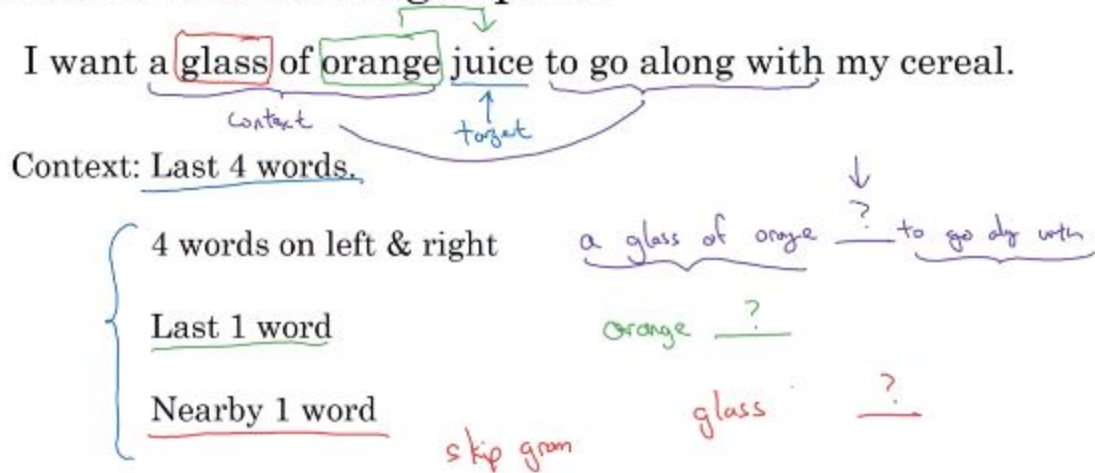 I want a glass of orange juice to go along with my cereal.
context
target
Context: Last 4 words.
4 words on left & right a glass of orange ? to go with
Last 1 word orange ?
Nearby 1 word glass ?
skip gram